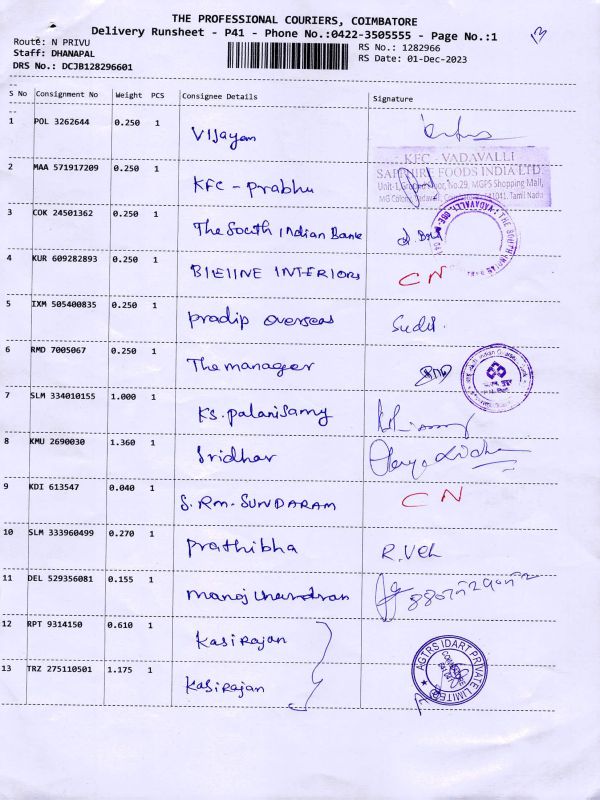 THE PROFESSIONAL COURIERS, COIMBATORE
Delivery Runsheet - P41 - Phone No.:0422-3505555 - Page No.:1
13
Route: N PRIVU
RS No.: 1282966
Staff: DHANAPAL
RS Date: 01-Dec-2023
DRS No.: DCJB128296601
S No Consignment No Weight PCS Consignee Details Signature
1 POL 3262644 0.250 1 Vijayan
2 MAA 571917209 0.250 1 KFC - Prabhu
KFC - VADAVALLI
SAPPHIRE FOODS INDIA LTD.
Unit-1, Ground Floor, No.29, MGPS Shopping Mall,
MG Colony, Vadavalli, 641041. Tamil Nadu
3 COK 24501362 0.250 1 The South Indian Bank
THE SOUTH INDIAN BANK VADAVALLI
4 KUR 609282893 0.250 1 BIEIINE INTERIORS CN
5 IXM 505400835 0.250 1 Pradip overseas Sudit.
6 RMD 7005067 0.250 1 The manager
7 SLM 334010155 1.000 1 KS. palanisamy
8 KMU 2690030 1.360 1 Sridhar
9 KDI 613547 0.040 1 S. Rm. SUNDARAM CN
10 SLM 333960499 0.270 1 Prathibha R. Vel
11 DEL 529356081 0.155 1 Manoj chandran
12 RPT 9314150 0.610 1 Kasirajan
13 TRZ 275110501 1.175 1 Kasirajan
AGTRS IDART PRIVATE LIMITED